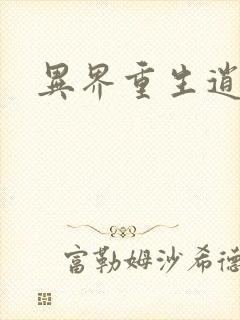 異界重生逍
富勒姆沙希德